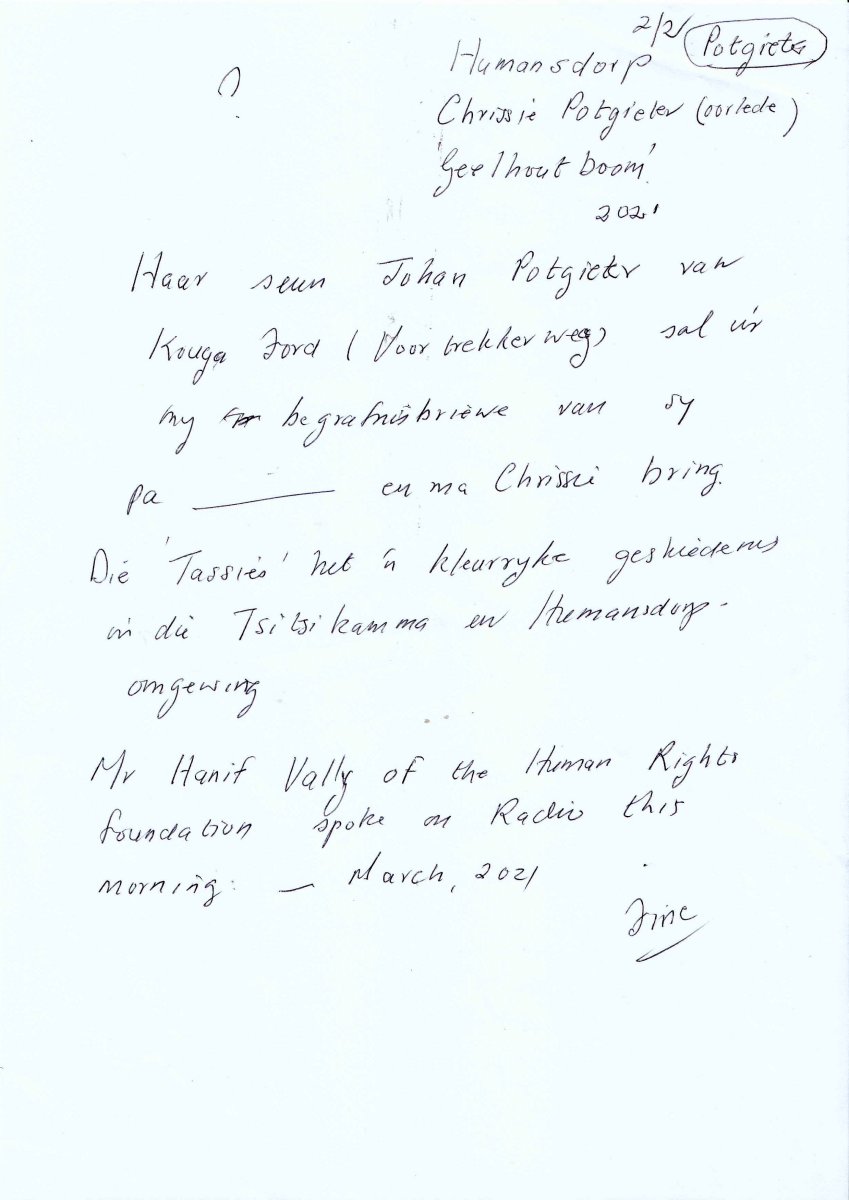 2/2 Potgieter
Humansdorp
?
Chrissie Potgieter (oorlede)
'Geelhoutboom'
2021
Haar seun Johan Potgieter van
Kouga Ford (Voortrekkerweg) sal vir
my begrafnisbriewe van sy
pa ______ en ma Chrissie bring.
Die 'Tassies' het 'n kleurryke geskiedenis
in die Tsitsikamma en Humansdorp-
omgewing
Mr Hanif Vally of the Human Rights
foundation spoke on Radio this
morning: — March, 2021
Fine